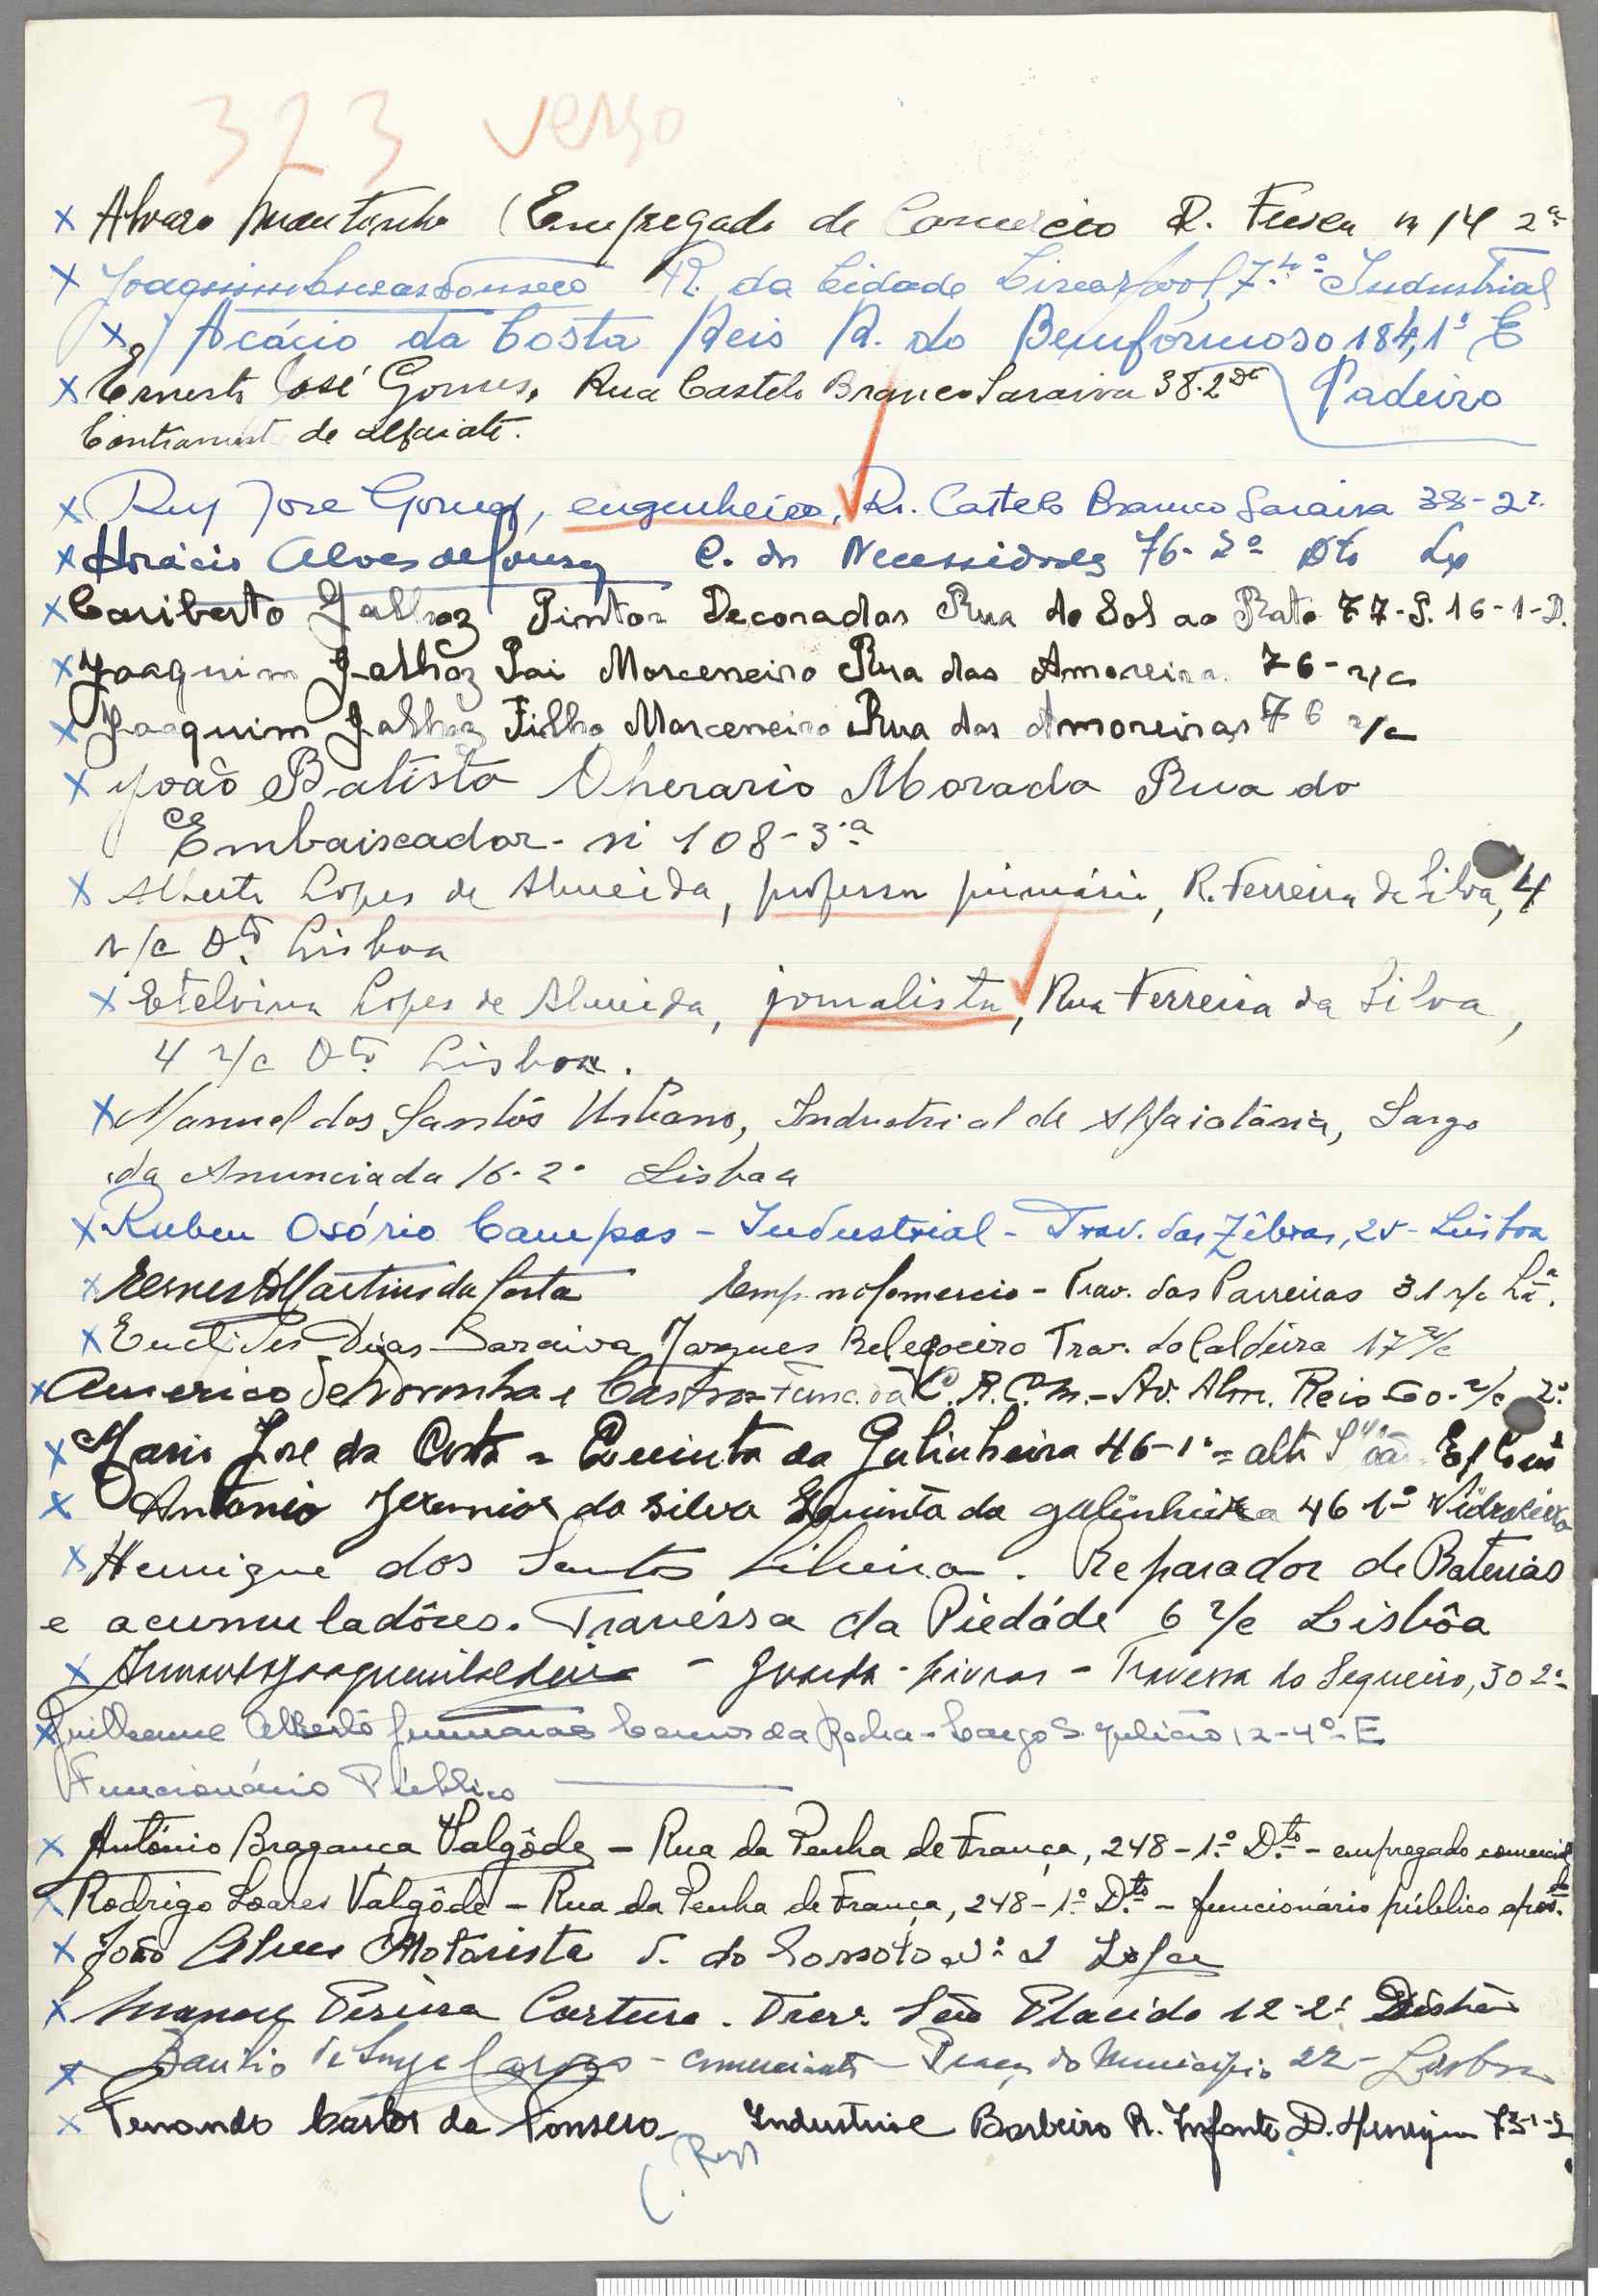 323 verso
x Alvaro (Empregado de Comercio R. n 14 2º
x Joaquim Lucas Fonseca R. da Cidade Liverpool, 7. Industrial
x Acácio da Costa Reis R. do Bemformoso 184, 1º E
x Ernesto José Gomes, Rua Castelo Branco Saraiva 38-2º Dto Padeiro
Contramest de alfaiate.
x Ruy José Gomes, engenheiro, R. Castelo Branco Saraiva 38-2º.
x Horácio Alves de Sousa C. das Necessidades 76-2º Dto Lx
x Cariberto Galhoz Pintor Decorador Rua do Sol ao Rato 77-P. 16-1-D.
x Joaquim Galhoz Pai Marceneiro Rua das Amoreiras 76-r/c
x Joaquim Galhoz Filho Marceneiro Rua das Amoreiras 76 r/c
x João Batista Operario Morada Rua do
Embaixcador - nº 108-3.ª
x Alberto Lopes de Almeida, professor primário, R. Ferreira da Silva, 4
r/c Dto. Lisboa
x Etelvina Lopes de Almeida, jornalista, Rua Ferreira da Silva,
4 r/c Dto Lisboa.
x Manuel dos Santos Urbano, Industrial de Alfaiataria, Largo
da Anunciada 16-2º Lisboa
x Ruben Osório Campos - Industrial - Trav. das Zêbras, 25 - Lisboa
x Ernesto Martins da Costa Emp. no Comercio - Trav. das Parreiras 31 r/c Lxª.
x Euclides Dias Saraiva Marques Relegoeiro Trav. do Caldeira 17 r/c
x Americo de Noronha e Castro - Func. da C.R.C.M. - Av. Alm. Reis 60-r/c 2º
x Mario José da Costa = Quinta da Galinheira 46-1º =
x Antonio Jeremias da Silva Quinta da galinheira 46 1º Vidraceiro
x Henrique dos Santos . Reparador de Baterias
e acumuladôres. Travéssa da Piedáde 6 r/c Lisbôa
x - Guarda-livros - Travessa do Sequeiro, 30 2º
x Guilherme Alberto Guimarães Lemos da Rocha - Largo S. Julião 12-4º-E
Funcionário Público
x António Bragança Valgôde - Rua da Penha de França, 248-1º. Dto. - empregado comercial
x Rodrigo Soares Valgôde - Rua da Penha de França, 248-1º. Dto. - funcionário público apos.do
x João Alves Motorista do nº 2
x Manoel Pereira . Trav. São Placido 12-2º
x Basilio - comerciante - Praça do Municipio 22 - Lisboa
x Fernando Carlos da Fonseca Industrial Barbeiro R. Infante D. Henrique 73-1-